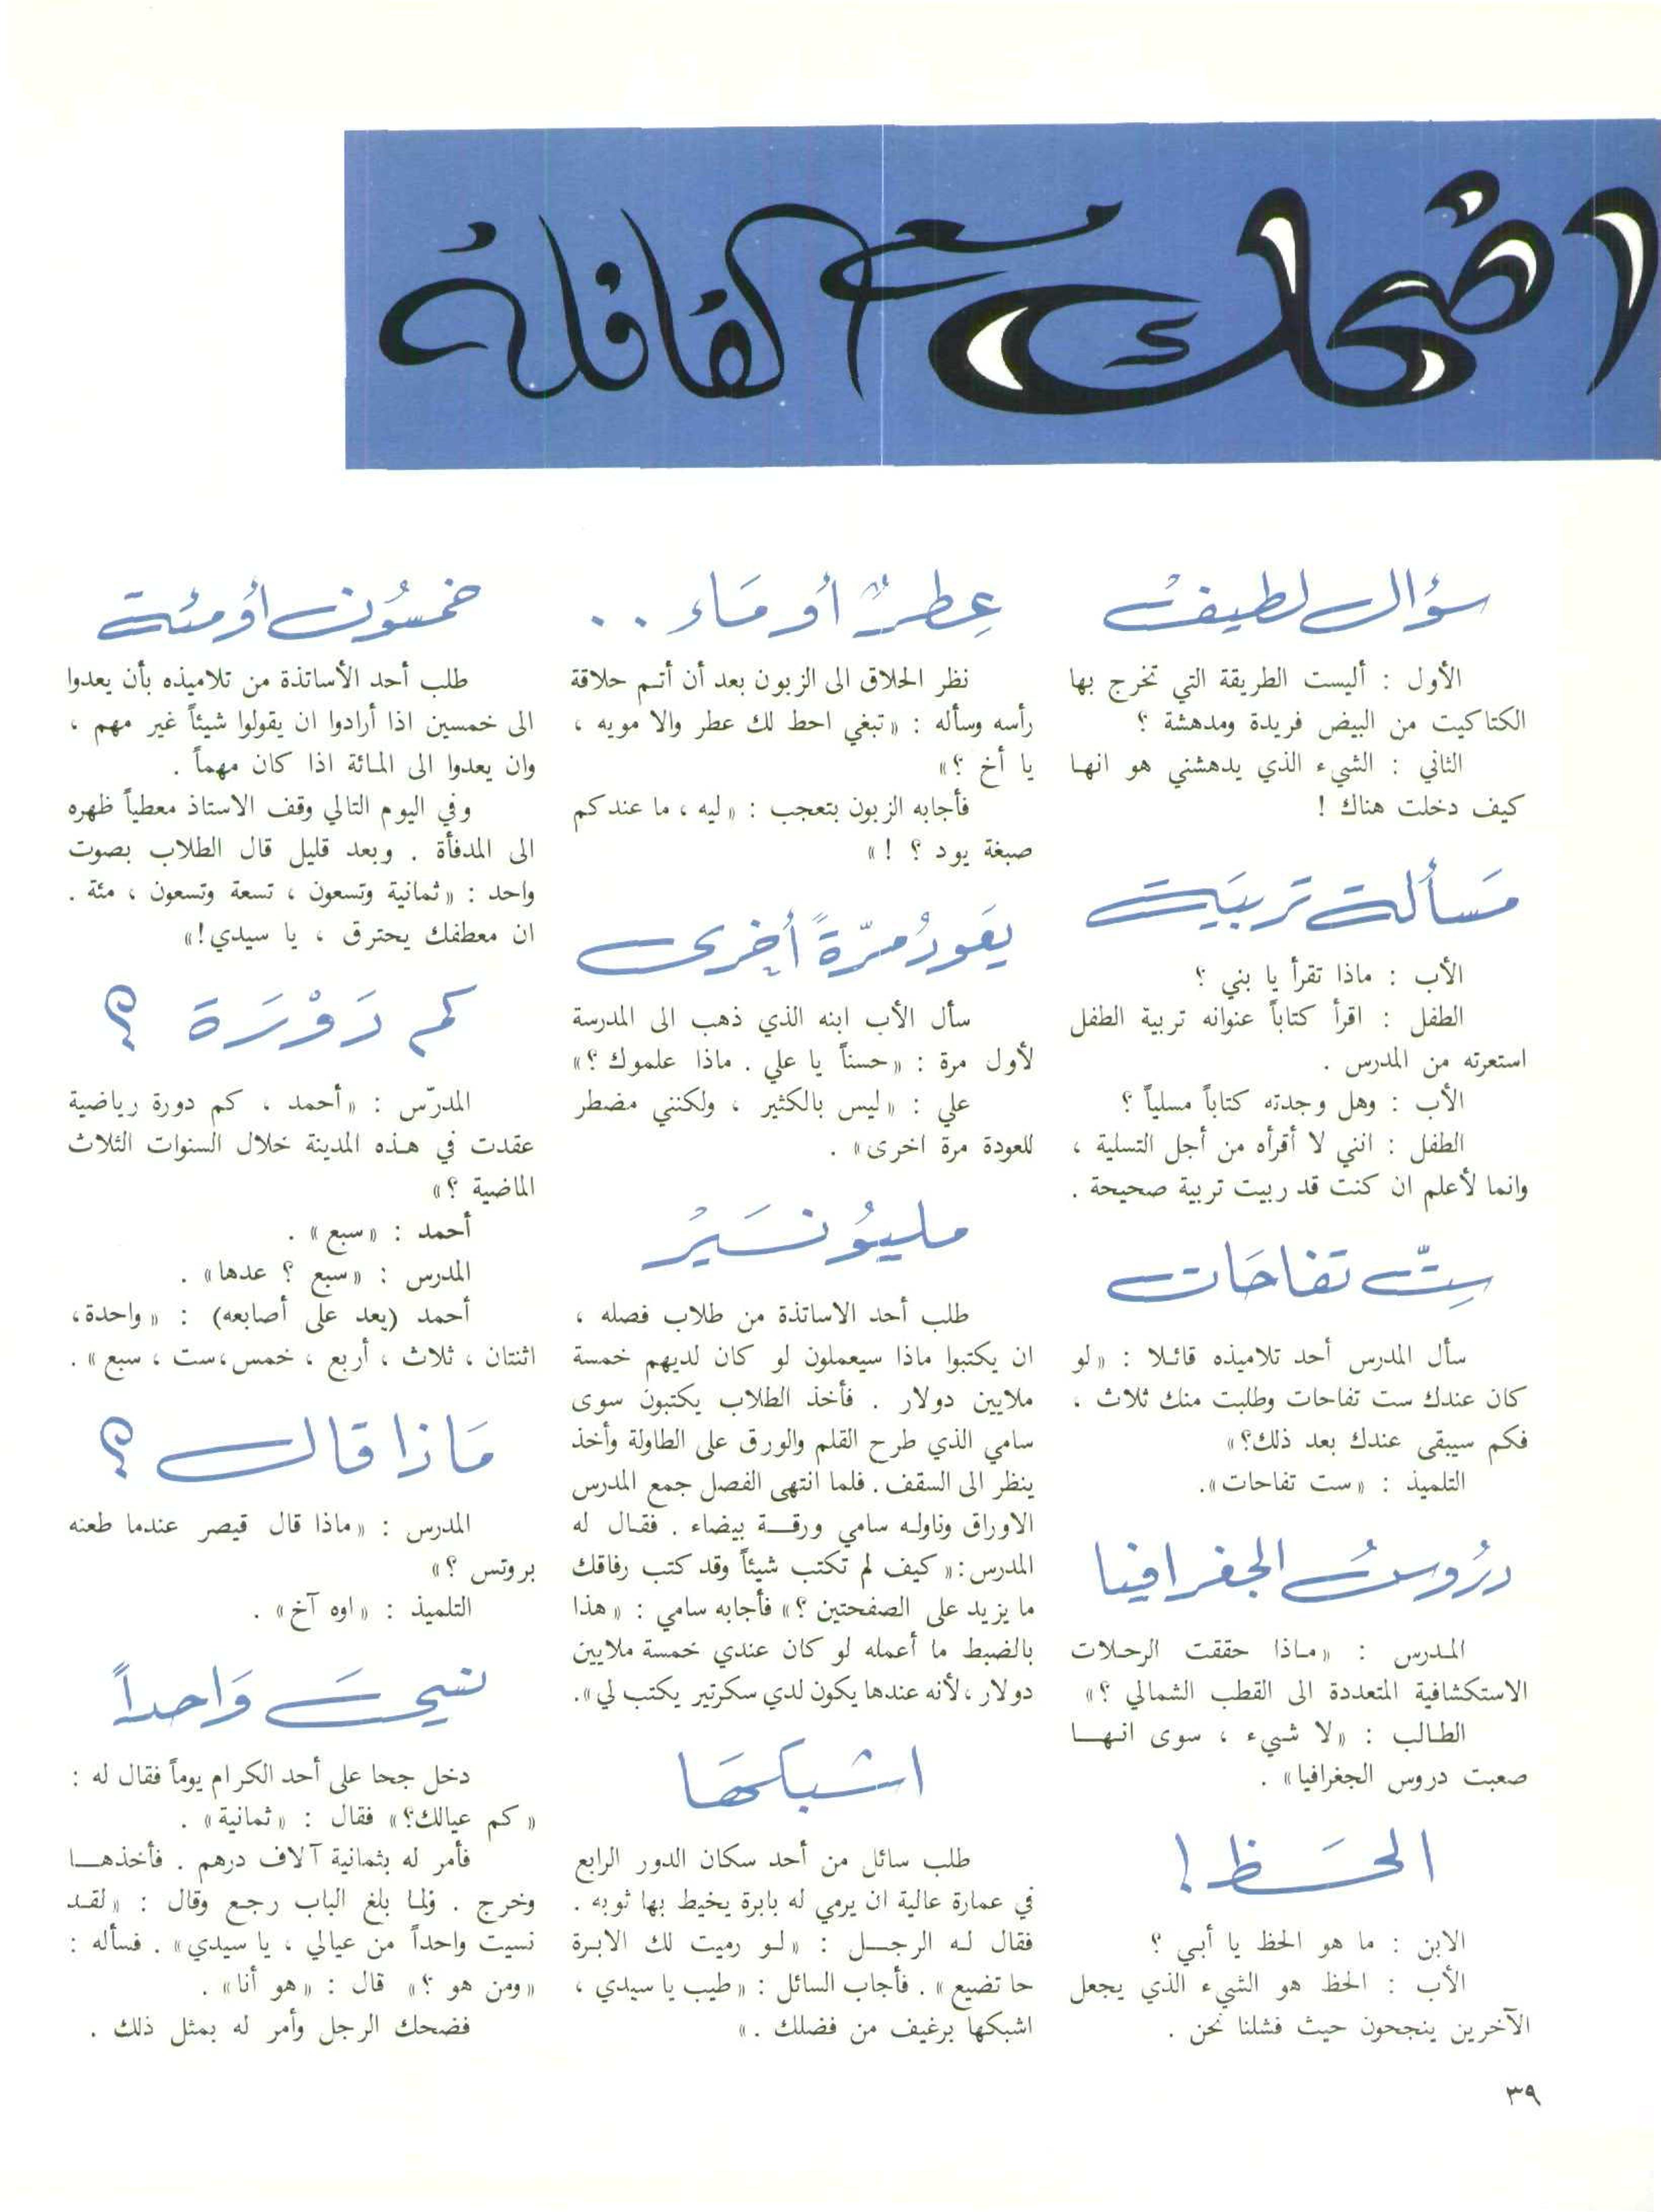 اضحك مع القافلة
سؤال لطيف
الأول : أليست الطريقة التي تخرج بها
الكتاكيت من البيض فريدة ومدهشة ؟
الثاني : الشيء الذي يدهشني هو انها
كيف دخلت هناك !
مسألة تربية
الأب : ماذا تقرأ يا بني ؟
الطفل : اقرأ كتاباً عنوانه تربية الطفل
استعرته من المدرس .
الأب : وهل وجدته كتاباً مسلياً ؟
الطفل : انني لا أقرأه من أجل التسلية ،
وانما لأعلم ان كنت قد ربيت تربية صحيحة .
ستّ تفاحات
سأل المدرس أحد تلاميذه قائلا : «لو
كان عندك ست تفاحات وطلبت منك ثلاث ،
فكم سيبقى عندك بعد ذلك؟»
التلميذ : «ست تفاحات».
دروس الجغرافيا
المدرس : «ماذا حققت الرحلات
الاستكشافية المتعددة الى القطب الشمالي ؟»
الطالب : «لا شيء ، سوى انها
صعبت دروس الجغرافيا» .
الحظ !
الابن : ما هو الحظ يا أبي ؟
الأب : الحظ هو الشيء الذي يجعل
الآخرين ينجحون حيث فشلنا نحن .
عطرٌ أو ماء . .
نظر الحلاق الى الزبون بعد أن أتم حلاقة
رأسه وسأله : «تبغي احط لك عطر والا مويه ،
يا أخ ؟»
فأجابه الزبون بتعجب : «ليه ، ما عندكم
صبغة يود ؟ !»
يعود مرّةً أخرى
سأل الأب ابنه الذي ذهب الى المدرسة
لأول مرة : «حسناً يا علي . ماذا علموك ؟»
علي : «ليس بالكثير ، ولكنني مضطر
للعودة مرة اخرى» .
مليونسير
طلب أحد الاساتذة من طلاب فصله ،
ان يكتبوا ماذا سيعملون لو كان لديهم خمسة
ملايين دولار . فأخذ الطلاب يكتبون سوى
سامي الذي طرح القلم والورق على الطاولة وأخذ
ينظر الى السقف . فلما انتهى الفصل جمع المدرس
الاوراق وناوله سامي ورقة بيضاء . فقال له
المدرس:«كيف لم تكتب شيئاً وقد كتب رفاقك
ما يزيد على الصفحتين ؟» فأجابه سامي : «هذا
بالضبط ما أعمله لو كان عندي خمسة ملايين
دولار ،لأنه عندها يكون لدي سكرتير يكتب لي».
اشبكها
طلب سائل من أحد سكان الدور الرابع
في عمارة عالية ان يرمي له بابرة يخيط بها ثوبه .
فقال له الرجل : «لو رميت لك الابرة
حا تضيع» . فأجاب السائل : «طيب يا سيدي ،
اشبكها برغيف من فضلك .»
خمسون أو مئة
طلب أحد الأساتذة من تلاميذه بأن يعدوا
الى خمسين اذا أرادوا ان يقولوا شيئاً غير مهم ،
وان يعدوا الى المائة اذا كان مهماً .
وفي اليوم التالي وقف الاستاذ معطياً ظهره
الى المدفأة . وبعد قليل قال الطلاب بصوت
واحد : «ثمانية وتسعون ، تسعة وتسعون ، مئة .
ان معطفك يحترق ، يا سيدي!»
كم دورة ؟
المدرّس : «أحمد ، كم دورة رياضية
عقدت في هذه المدينة خلال السنوات الثلاث
الماضية ؟»
أحمد : «سبع» .
المدرس : «سبع ؟ عدها» .
أحمد (يعد على أصابعه) : «واحدة،
اثنتان ، ثلاث ، أربع ، خمس،ست ، سبع» .
ماذا قال ؟
المدرس : «ماذا قال قيصر عندما طعنه
بروتس ؟»
التلميذ : «اوه آخ» .
نسيت واحداً
دخل جحا على أحد الكرام يوماً فقال له :
«كم عيالك؟» فقال : «ثمانية» .
فأمر له بثمانية آلاف درهم . فأخذها
وخرج . ولما بلغ الباب رجع وقال : «لقد
نسيت واحداً من عيالي ، يا سيدي» . فسأله :
«ومن هو ؟» قال : «هو أنا» .
فضحك الرجل وأمر له بمثل ذلك .
٣٩